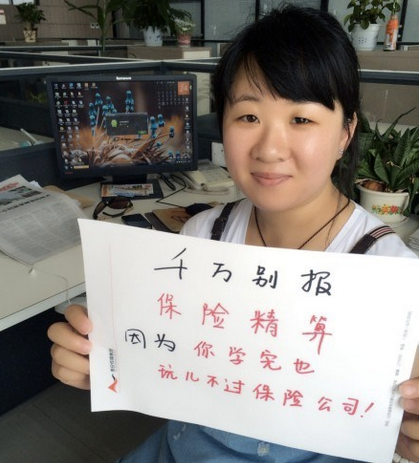 千万别报
保险精算
因为你学完也
玩儿不过保险公司!